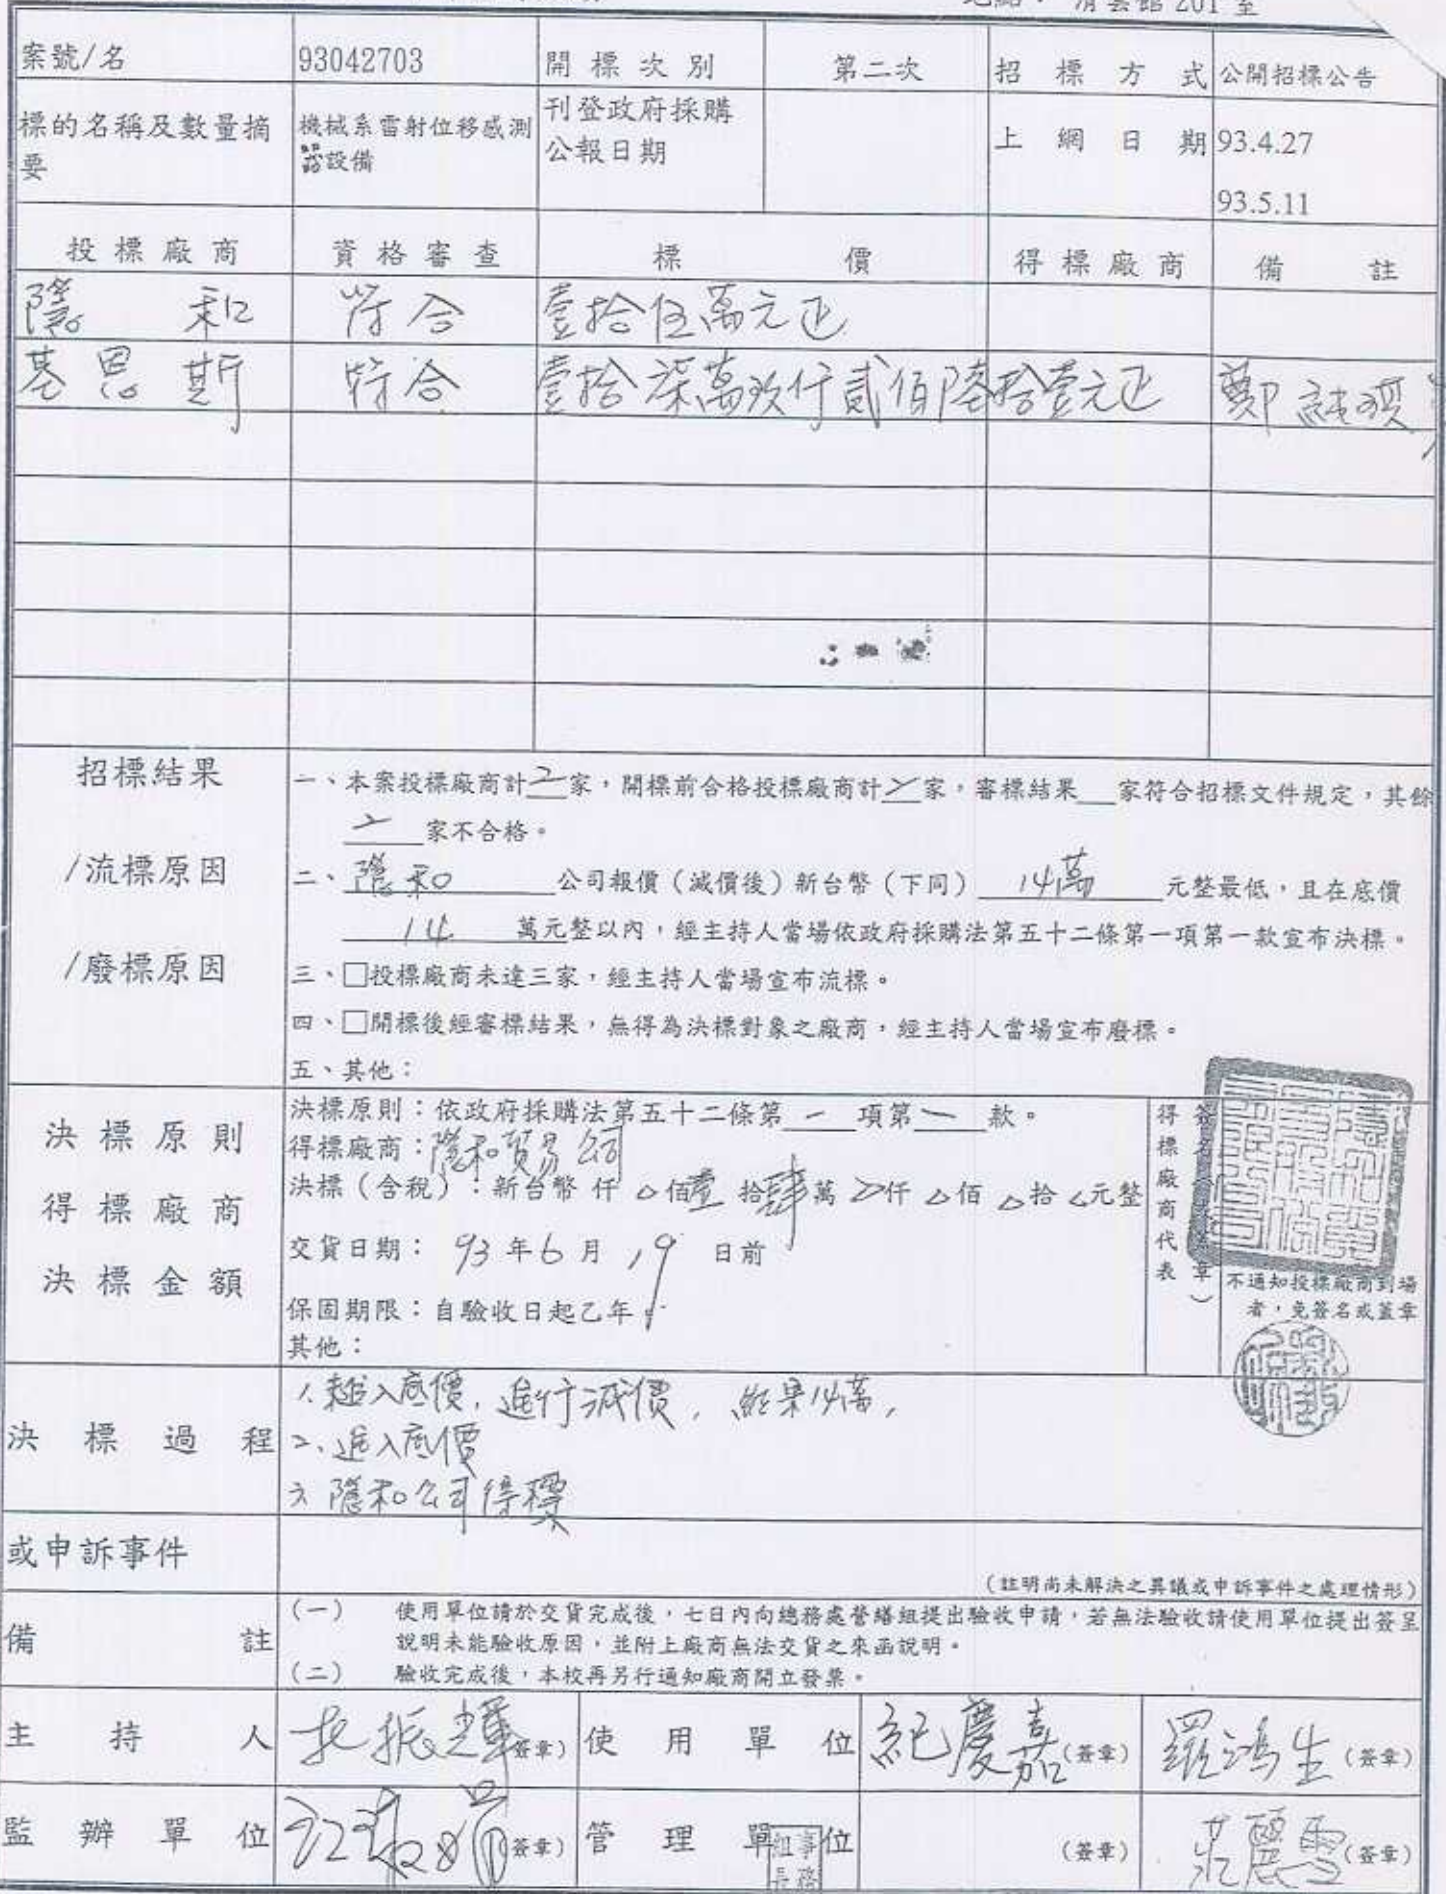 地點： 清雲館 201 室
案號/名 93042703 開標次別 第二次 招標方式 公開招標公告
標的名稱及數量摘要 機械系雷射位移感測器設備 刊登政府採購公報日期 上網日期 93.4.27
93.5.11
投標廠商 資格審查 標價 得標廠商 備註
隱和 符合 壹拾伍萬元正
基恩斯 符合 壹拾柒萬玖仟貳佰陸拾壹元正 鄭
招標結果
/流標原因
/廢標原因
一、本案投標廠商計2家，開標前合格投標廠商計2家，審標結果__家符合招標文件規定，其餘
家不合格。
二、隱和 公司報價（減價後）新台幣（下同） 14萬 元整最低，且在底價
14 萬元整以內，經主持人當場依政府採購法第五十二條第一項第一款宣布決標。
三、□投標廠商未達三家，經主持人當場宣布流標。
四、□開標後經審標結果，無得為決標對象之廠商，經主持人當場宣布廢標。
五、其他：
決標原則
得標廠商
決標金額
決標原則：依政府採購法第五十二條第一項第一款。
得標廠商：隱和貿易公司
決標（含稅）：新台幣 仟 △佰壹拾肆萬 △仟 △佰 △拾 △元整
交貨日期： 93年6月19日前
保固期限：自驗收日起乙年
其他：
得標廠商代表
章）
不通知投標廠商到場
者，免簽名或蓋章
決標過程
1. 超入底價，進行減價，結果14萬，
2. 進入底價
3. 隱和公司得標
或申訴事件
（註明尚未解決之異議或申訴事件之處理情形）
備註
（一） 使用單位請於交貨完成後，七日內向總務處營繕組提出驗收申請，若無法驗收請使用單位提出簽呈
說明未能驗收原因，並附上廠商無法交貨之來函說明。
（二） 驗收完成後，本校再另行通知廠商開立發票。
主持人 振輝(簽章) 使用單位 紀慶嘉(簽章) 羅鴻生(簽章)
監辦單位 (簽章) 管理單位 (簽章) 莊麗雪(簽章)